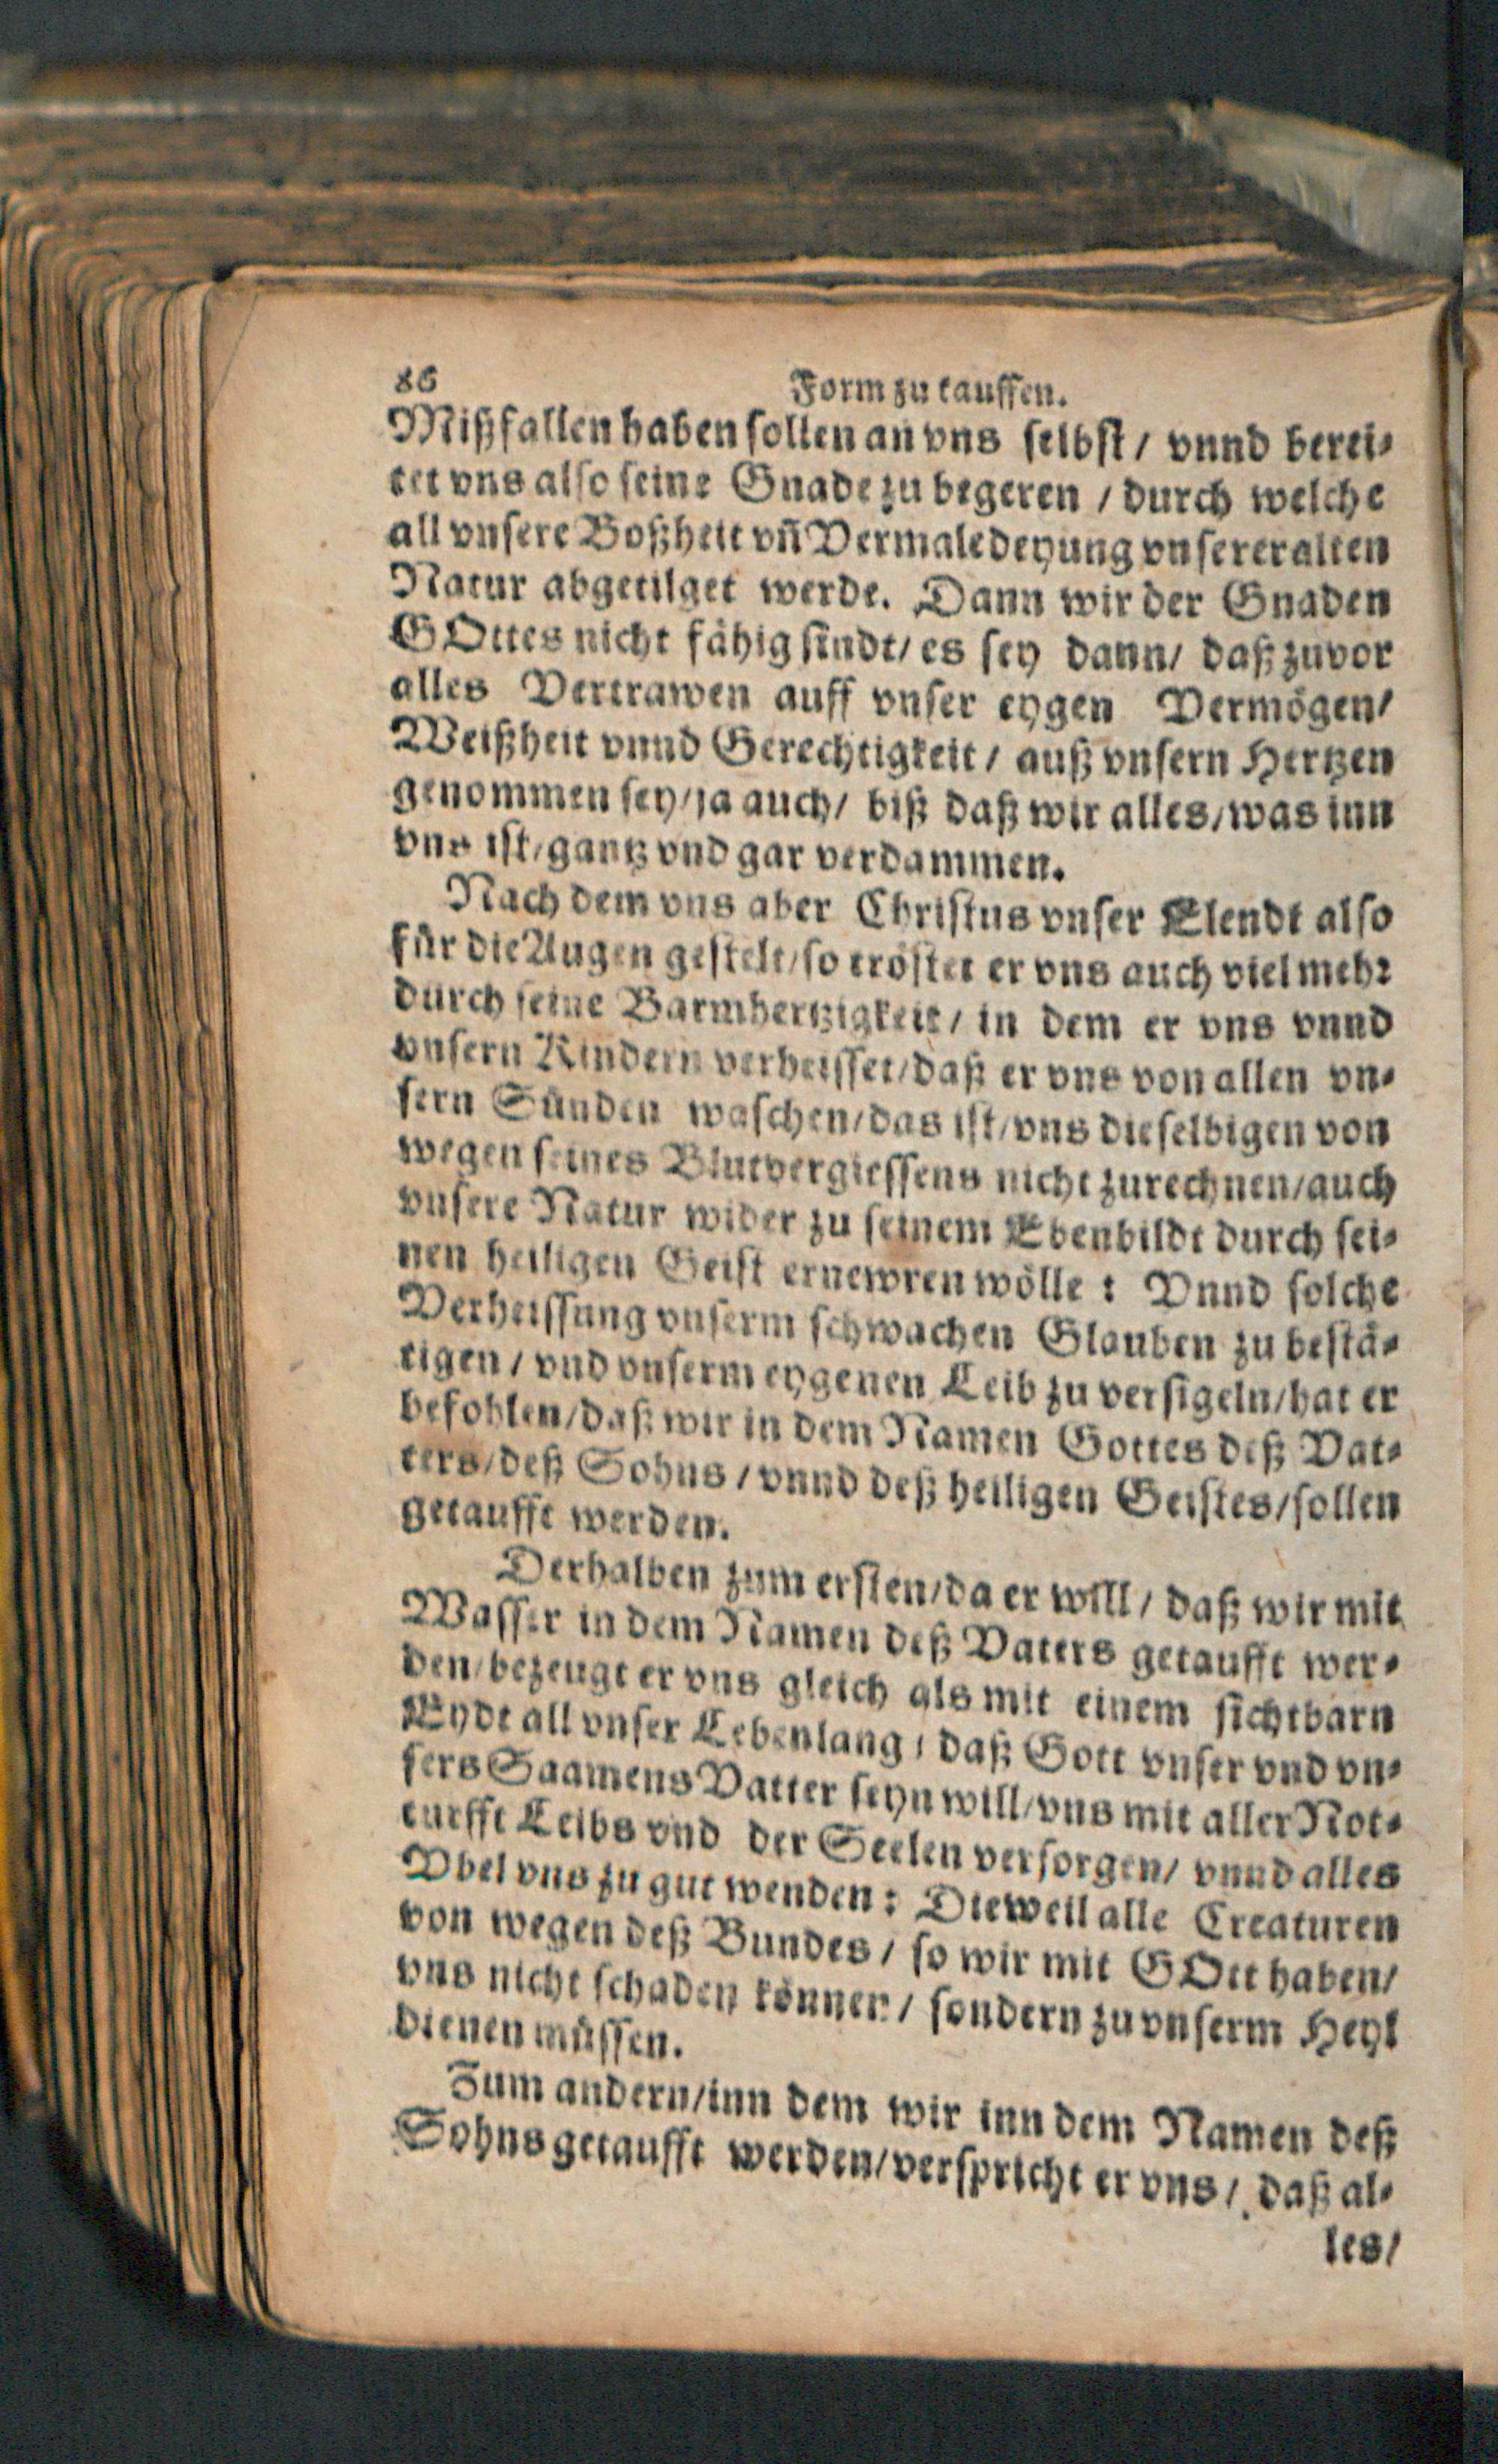 86 Form zu tauffen.
Mißfallen haben sollen an vns selbst / vnnd berei-
tet vns also seine Gnade zu begeren / durch welche
all vnsere Boßheit vñ Vermaledeyung vnserer alten
Natur abgetilget werde. Dann wir der Gnaden
GOttes nicht fähig sindt / es sey dann / daß zuvor
alles Vertrawen auff vnser eygen Vermögen /
Weißheit vnnd Gerechtigkeit / auß vnsern Hertzen
genommen sey / ja auch / biß daß wir alles / was inn
vns ist / gantz vnd gar verdammen.
Nach dem vns aber Christus vnser Elendt also
für die Augen gestelt / so tröstet er vns auch viel mehr
durch seine Barmhertzigkeit / in dem er vns vnnd
vnsern Kindern verheisset / daß er vns von allen vn-
sern Sünden waschen / das ist / vns dieselbigen von
wegen seines Blutvergiessens nicht zurechnen / auch
vnsere Natur wider zu seinem Ebenbildt durch sei-
nen heiligen Geist ernewren wölle : Vnnd solche
Verheissung vnserm schwachen Glauben zu bestä-
tigen / vnd vnserm eygenen Leib zu versigeln / hat er
befohlen / daß wir in dem Namen Gottes deß Vat-
ters / deß Sohns / vnnd deß heiligen Geistes / sollen
getaufft werden.
Derhalben zum ersten / da er will / daß wir mit
Wasser in dem Namen deß Vaters getaufft wer-
den / bezeugt er vns gleich als mit einem sichtbarn
Eydt all vnser Lebenlang / daß Gott vnser vnd vn-
sers Saamens Vatter seyn will / vns mit aller Not-
turfft Leibs vnd der Seelen versorgen / vnnd alles
Vbel vns zu gut wenden : Dieweil alle Creaturen
von wegen deß Bundes / so wir mit GOtt haben /
vns nicht schaden können / sondern zu vnserm Heyl
dienen müssen.
Zum andern / inn dem wir inn dem Namen deß
Sohns getaufft werden / verspricht er vns / daß al-
les /